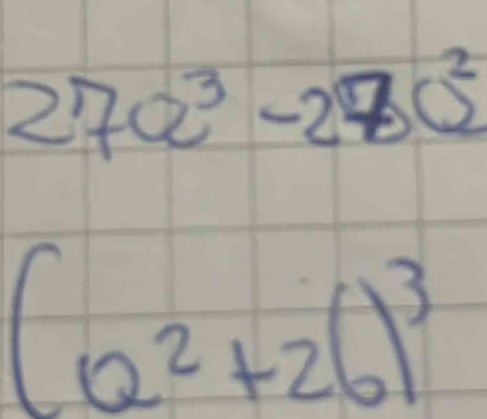 27a³ - 27a²
(a² + 2b)³